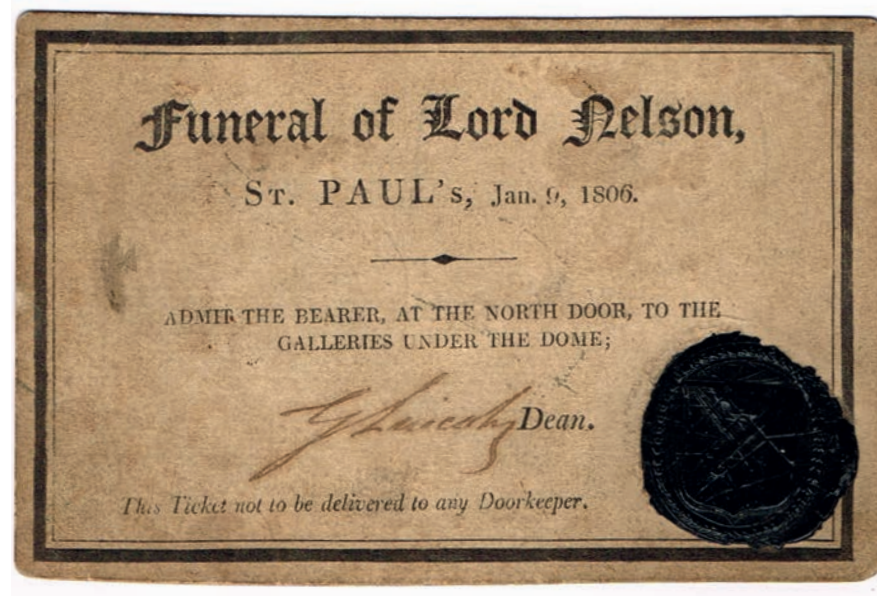 Funeral of Lord Nelson,
St. PAUL's, Jan. 9, 1806.
ADMIT THE BEARER, AT THE NORTH DOOR, TO THE
GALLERIES UNDER THE DOME;
G Lincoln, Dean.
This Ticket not to be delivered to any Doorkeeper.